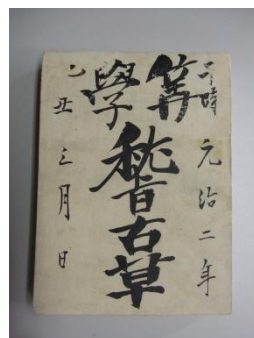 于時元治二年
筭學
稽古草
乙丑三月日